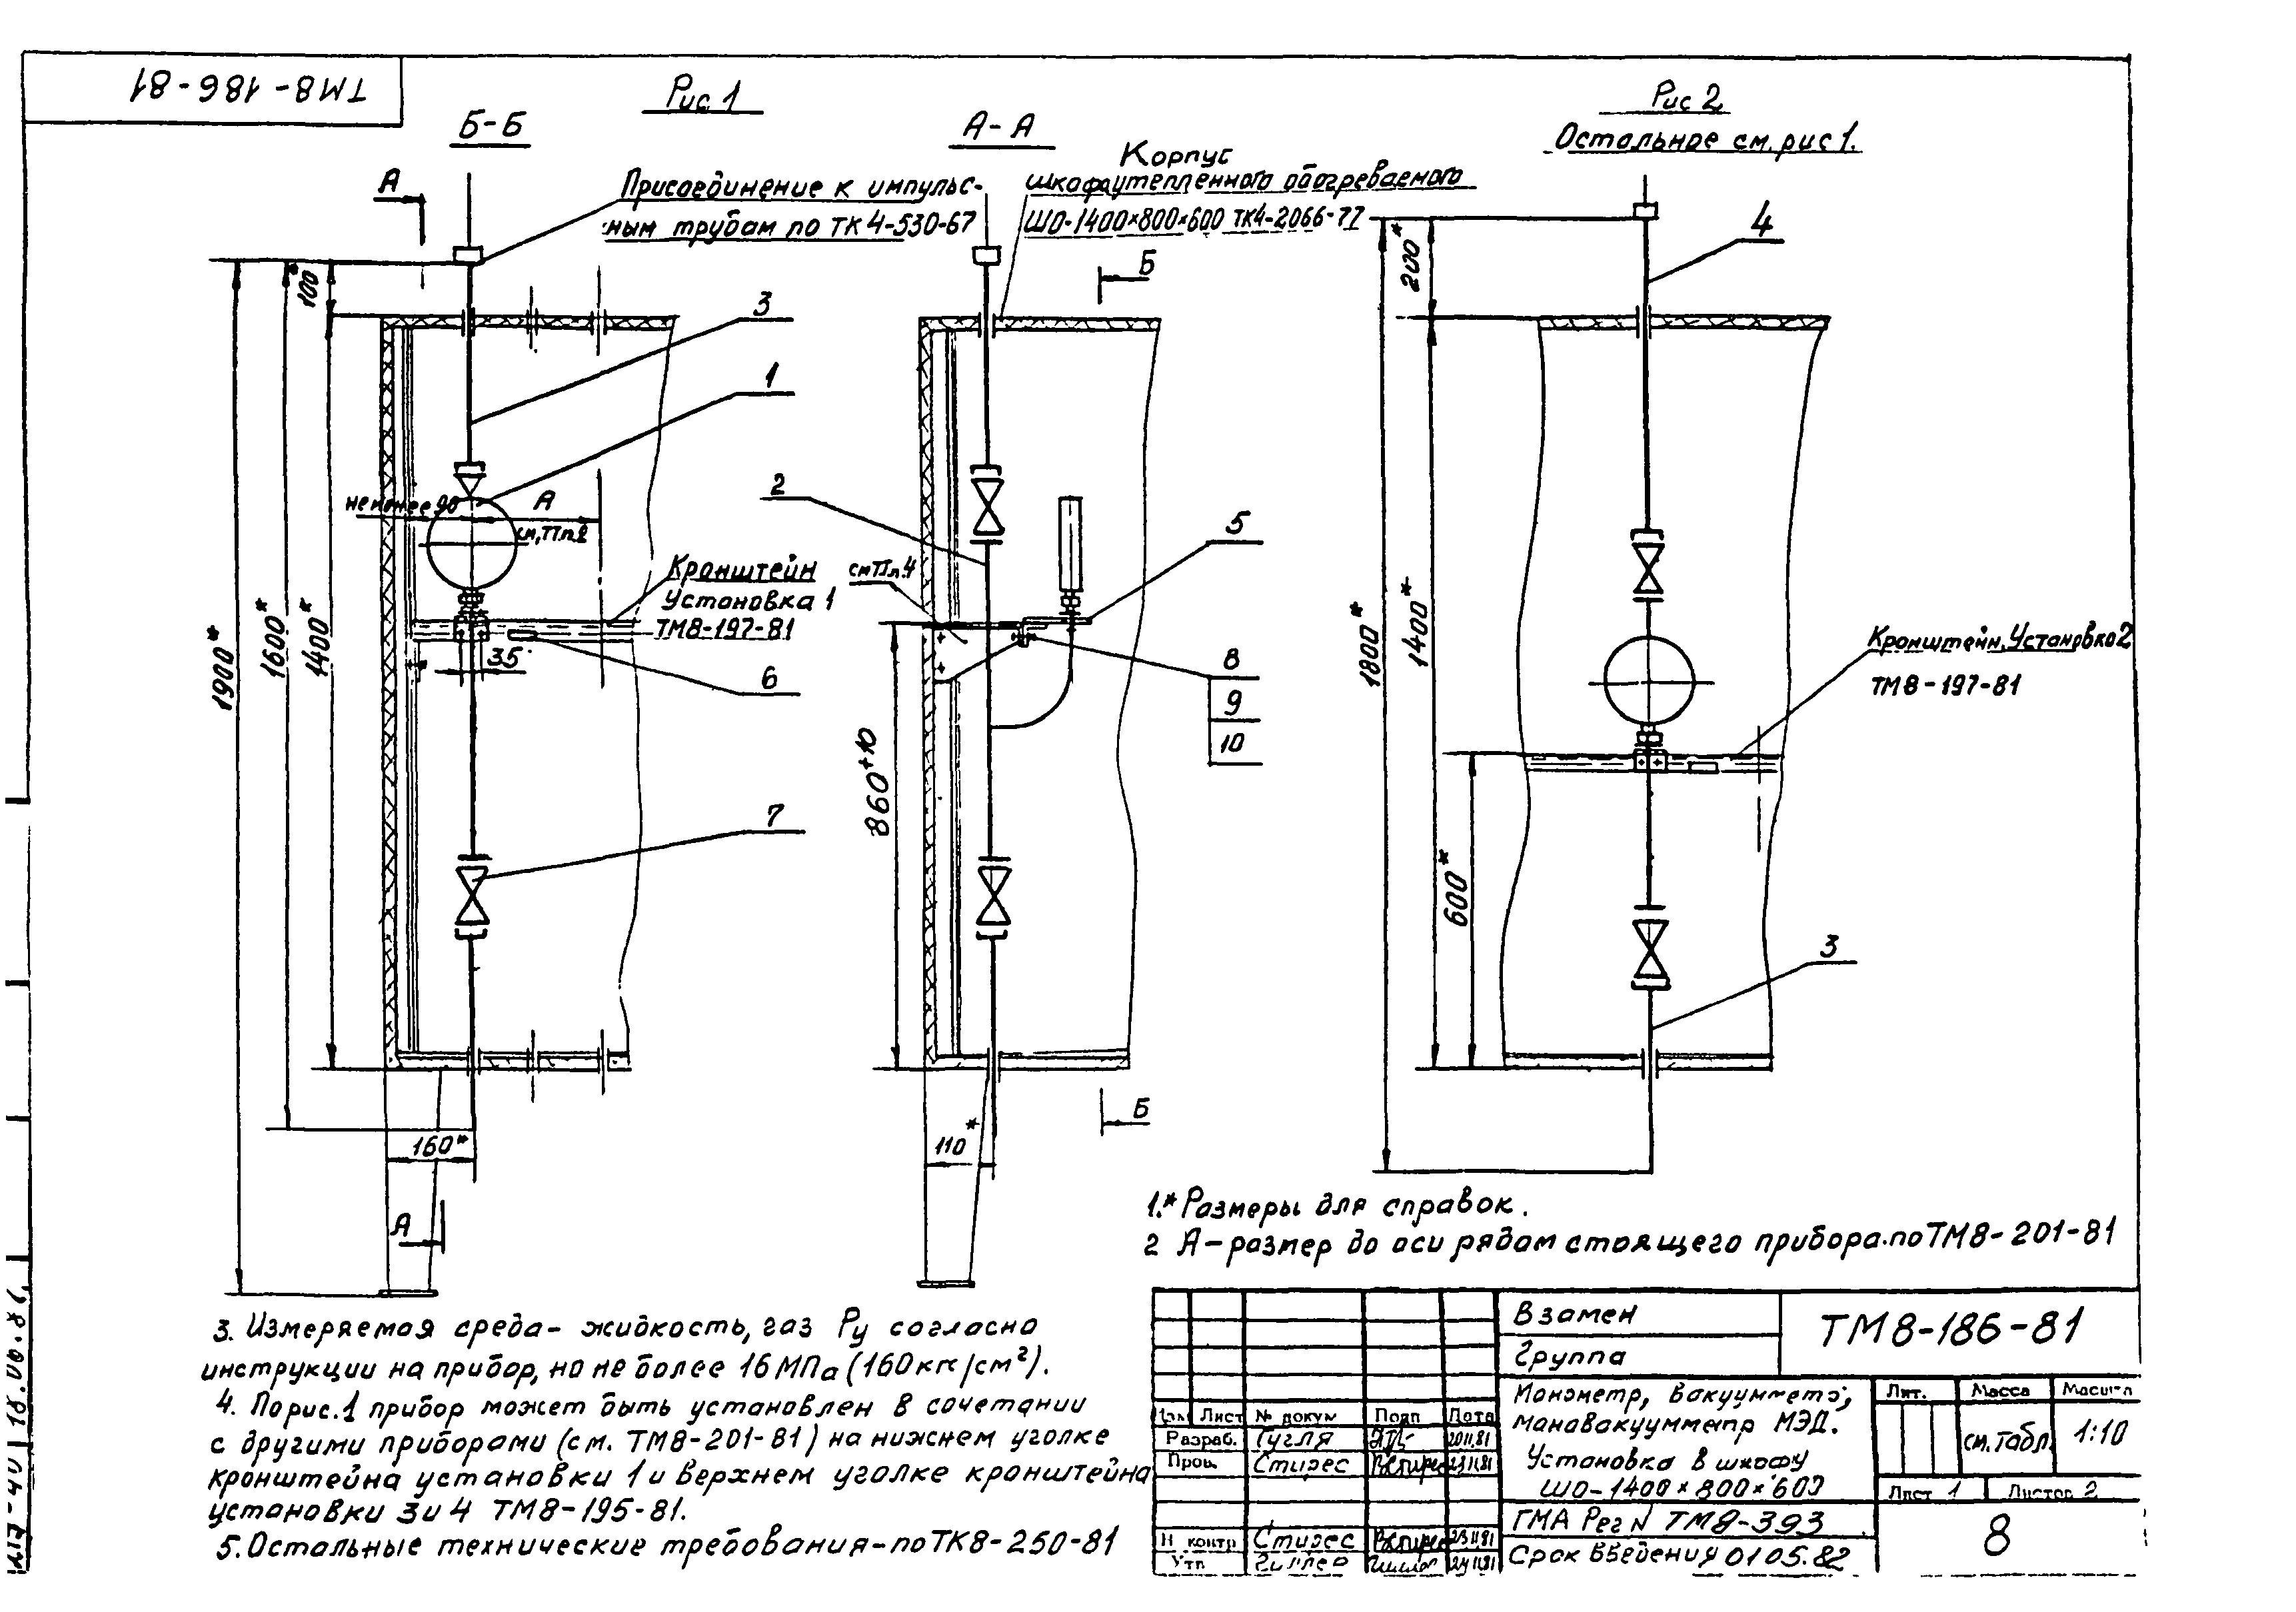 ТМ8-186-81
Рис 1
Б-Б
А-А
Рис 2
Остальное см. рис 1.
А
Присоединение к импульс-
ным трубам по ТК4-530-67
Корпус
шкафа утепленного обогреваемого
ШО-1400×800×600 ТК4-2066-77
Б
100*
3
1
не менее 90
А
см. ТТ п.2
Кронштейн
Установка 1
ТМ8-197-81
35
6
7
1900*
1600*
1400*
160*
А
2
см ТТ п.4
5
8
9
10
860+10
110*
Б
4
200*
1800*
1400*
600*
Кронштейн. Установка 2
ТМ8-197-81
3
1.* Размеры для справок.
2 А-размер до оси рядом стоящего прибора.по ТМ8-201-81
3. Измеряемая среда- жидкость, газ Ру согласно
инструкции на прибор, но не более 16 МПа (160 кгс/см²).
4. По рис.1 прибор может быть установлен в сочетании
с другими приборами (см. ТМ8-201-81) на нижнем уголке
кронштейна установки 1 и верхнем уголке кронштейна
установки 3 и 4 ТМ8-195-81.
5. Остальные технические требования-по ТК8-250-81
Взамен
Группа
ТМ8-186-81
Манометр, вакуумметр,
мановакуумметр МЭД.
Установка в шкафу
ШО-1400×800×600
Лит. Масса Масштаб
см. табл. 1:10
Лист 1 Листов 2
Изм Лист № докум Подп Дата
Разраб. Гугля 20.11.81
Пров. Стирес 23.11.81
Н контр Стирес 23.11.81
Утв 24.11.81
ГМА Рег N ТМ8-393
Срок введения 01 05.82
8